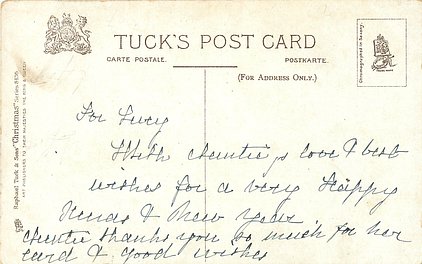 TUCK'S POST CARD
CARTE POSTALE.
POSTKARTE.
(FOR ADDRESS ONLY.)
Chromographed in Saxony.
Raphael Tuck & Sons' "Christmas" Series 8436
ART PUBLISHERS TO THEIR MAJESTIES THE KING & QUEEN
For Lucy
With Auntie's love & best
wishes for a very Happy
& New Year
Auntie thanks you so much for her
card & good wishes